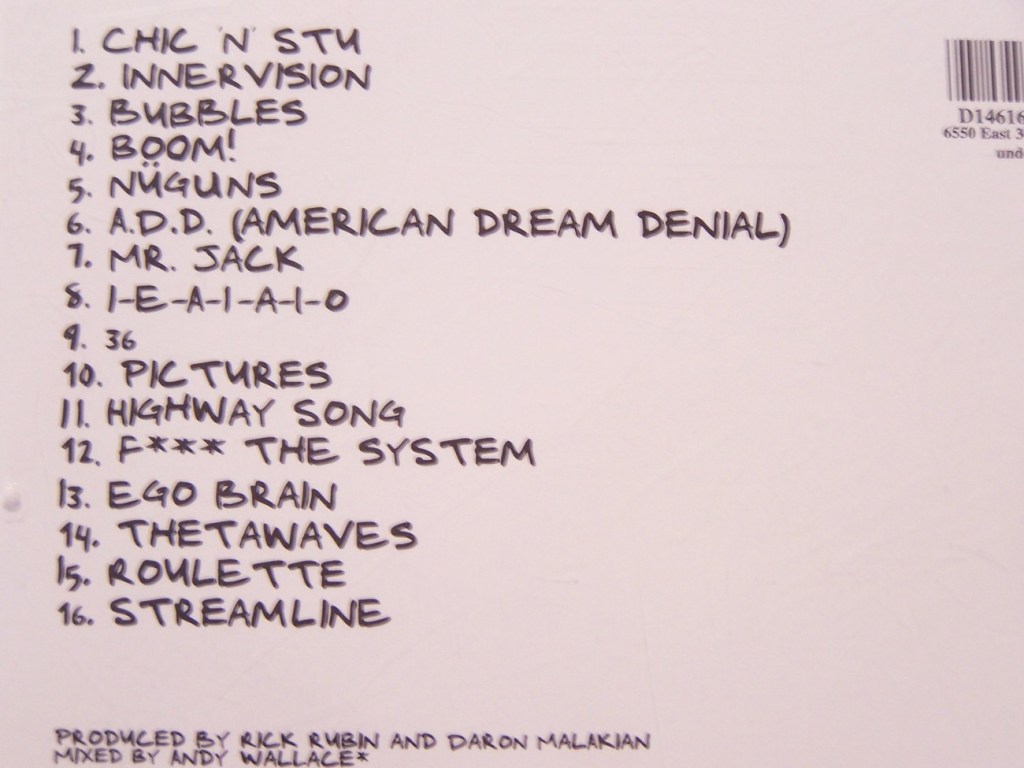 1. CHIC 'N' STU
2. INNERVISION
3. BUBBLES
4. BOOM!
5. NÜGUNS
6. A.D.D. (AMERICAN DREAM DENIAL)
7. MR. JACK
8. I-E-A-I-A-I-O
9. 36
10. PICTURES
11. HIGHWAY SONG
12. F*** THE SYSTEM
13. EGO BRAIN
14. THETAWAVES
15. ROULETTE
16. STREAMLINE
D14616
6550 East 3
und
PRODUCED BY RICK RUBIN AND DARON MALAKIAN
MIXED BY ANDY WALLACE*